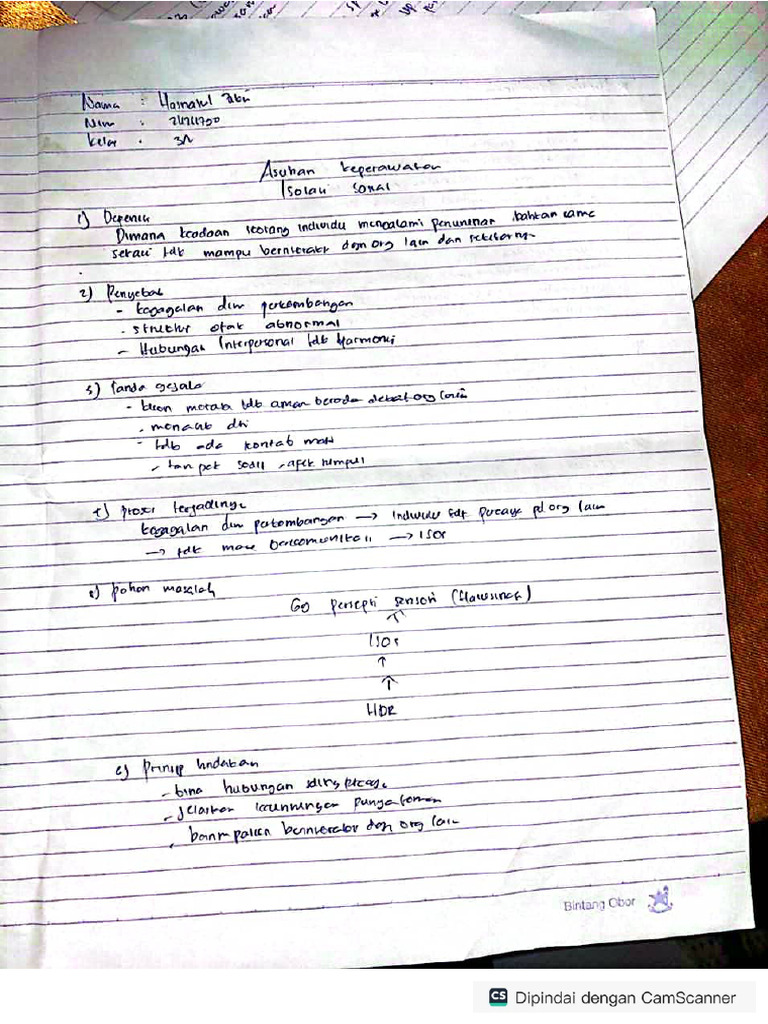 Nama :
Nim :
Kelas . 3A
Asuhan keperawatan
Isolasi sosial
1) Defenisi
Dimana keadaan seorang individu mengalami penurunan bahkan sama
sekali tdk mampu berinteraksi dgn org lain dan sekitarnya
2) Penyebab
- kegagalan dlm perkembangan
- struktur otak abnormal
- Hubungan Interpersonal tdk Harmonis
3) tanda gejala
- klien merasa tdk aman berada dekat org lain
- menarik diri
- tdk ada kontak mata
- tampak sedih, afek tumpul
proses terjadinya
kegagalan dlm perkembangan → Individu tdk percaya pd org lain
→ tdk mau berkomunikasi → ISOS
pohon masalah
Gg persepsi sensori (Halusinasi)
↑
ISOS
↑
↑
HDR
prinsip tindakan
- bina hubungan saling percaya
- jelaskan keuntungan
- berinteraksi dgn org lain
Bintang Obor
CS Dipindai dengan CamScanner